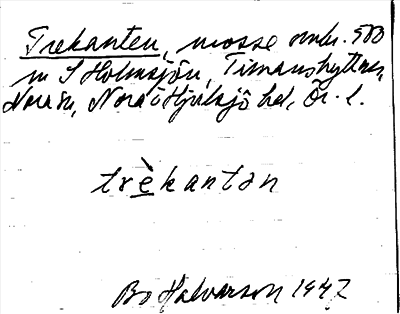 Trekanten, mosse omkr. 500
m S Holmsjön, Timanshyttan,
Nora sn, Nora o Hjulsjö hd, Ör. l.
trè̱kantən
Bo Halvarson 1947